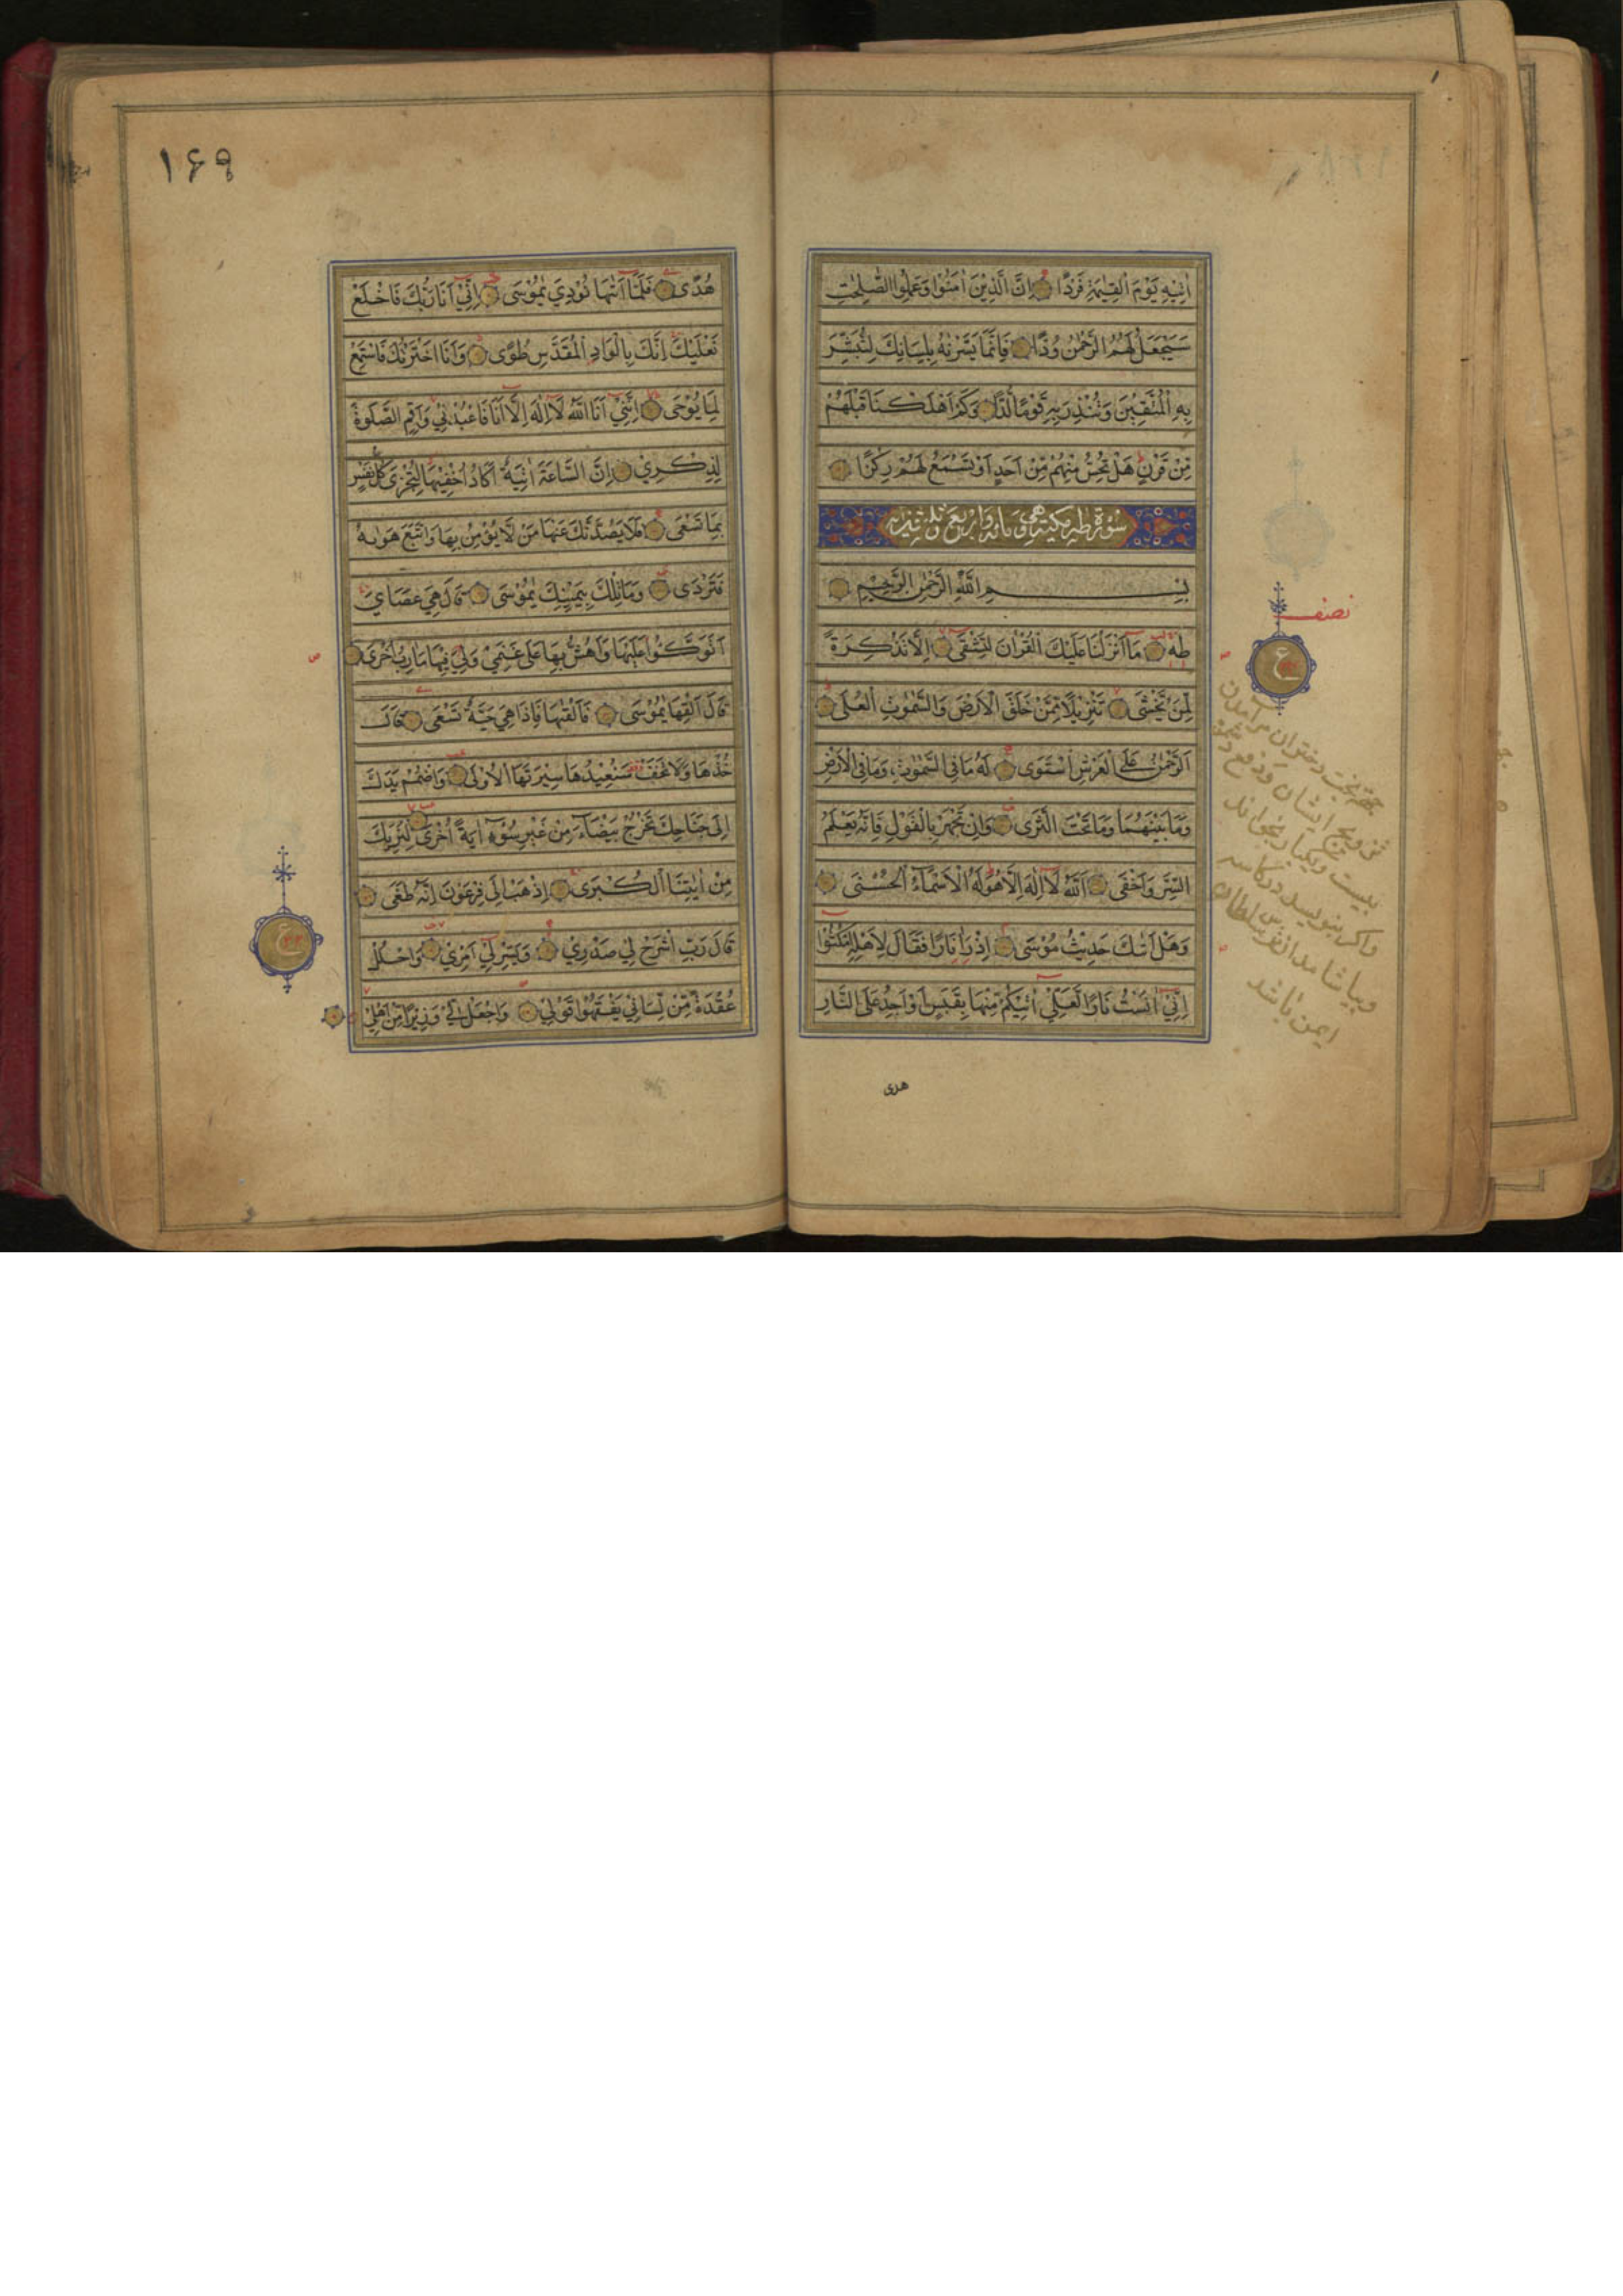 اٰتِيهِ يَوْمَ الْقِيٰمَةِ فَرْدًا اِنَّ الَّذِيْنَ اٰمَنُوْا وَعَمِلُوا الصّٰلِحٰتِ
سَيَجْعَلُ لَهُمُ الرَّحْمٰنُ وُدًّا فَاِنَّمَا يَسَّرْنٰهُ بِلِسَانِكَ لِتُبَشِّرَ
بِهِ الْمُتَّقِيْنَ وَتُنْذِرَ بِهِ قَوْمًا لُدًّا وَكَمْ اَهْلَكْنَا قَبْلَهُمْ
مِنْ قَرْنٍ هَلْ تُحِسُّ مِنْهُمْ مِنْ اَحَدٍ اَوْ تَسْمَعُ لَهُمْ رِكْزًا
سورة طه مكية وهي مائة واربع وثلثون
بِسْمِ اللّٰهِ الرَّحْمٰنِ الرَّحِيْمِ
طٰهٰ مَا اَنْزَلْنَا عَلَيْكَ الْقُرْاٰنَ لِتَشْقٰى اِلَّا تَذْكِرَةً
لِمَنْ يَخْشٰى تَنْزِيْلًا مِمَّنْ خَلَقَ الْاَرْضَ وَالسَّمٰوٰتِ الْعُلٰى
اَلرَّحْمٰنُ عَلَى الْعَرْشِ اسْتَوٰى لَهُ مَا فِي السَّمٰوٰتِ وَمَا فِي الْاَرْضِ
وَمَا بَيْنَهُمَا وَمَا تَحْتَ الثَّرٰى وَاِنْ تَجْهَرْ بِالْقَوْلِ فَاِنَّهُ يَعْلَمُ
السِّرَّ وَاَخْفٰى اَللّٰهُ لَا اِلٰهَ اِلَّا هُوَ لَهُ الْاَسْمَاءُ الْحُسْنٰى
وَهَلْ اَتٰىكَ حَدِيْثُ مُوْسٰى اِذْ رَاٰ نَارًا فَقَالَ لِاَهْلِهِ امْكُثُوْا
اِنِّيْ اٰنَسْتُ نَارًا لَعَلِّيْ اٰتِيْكُمْ مِنْهَا بِقَبَسٍ اَوْ اَجِدُ عَلَى النَّارِ
هدى
نصف
ع
تزويج ايشان
بيست ويكبار بخواند
واكر بنويسد در كاسه
وبياشامد از شر سلطان
ايمن باشد
١۶٩
هُدًى فَلَمَّا اَتٰىهَا نُوْدِيَ يٰمُوْسٰى اِنِّيْ اَنَا رَبُّكَ فَاخْلَعْ
نَعْلَيْكَ اِنَّكَ بِالْوَادِ الْمُقَدَّسِ طُوًى وَاَنَا اخْتَرْتُكَ فَاسْتَمِعْ
لِمَا يُوْحٰى اِنَّنِيْ اَنَا اللّٰهُ لَا اِلٰهَ اِلَّا اَنَا فَاعْبُدْنِيْ وَاَقِمِ الصَّلٰوةَ
لِذِكْرِيْ اِنَّ السَّاعَةَ اٰتِيَةٌ اَكَادُ اُخْفِيْهَا لِتُجْزٰى كُلُّ نَفْسٍ
بِمَا تَسْعٰى فَلَا يَصُدَّنَّكَ عَنْهَا مَنْ لَا يُؤْمِنُ بِهَا وَاتَّبَعَ هَوٰىهُ
فَتَرْدٰى وَمَا تِلْكَ بِيَمِيْنِكَ يٰمُوْسٰى قَالَ هِيَ عَصَايَ
اَتَوَكَّؤُا عَلَيْهَا وَاَهُشُّ بِهَا عَلٰى غَنَمِيْ وَلِيَ فِيْهَا مَاٰرِبُ اُخْرٰى
قَالَ اَلْقِهَا يٰمُوْسٰى فَاَلْقٰىهَا فَاِذَا هِيَ حَيَّةٌ تَسْعٰى قَالَ
خُذْهَا وَلَا تَخَفْ سَنُعِيْدُهَا سِيْرَتَهَا الْاُوْلٰى وَاضْمُمْ يَدَكَ
اِلٰى جَنَاحِكَ تَخْرُجْ بَيْضَاءَ مِنْ غَيْرِ سُوْءٍ اٰيَةً اُخْرٰى لِنُرِيَكَ
مِنْ اٰيٰتِنَا الْكُبْرٰى اِذْهَبْ اِلٰى فِرْعَوْنَ اِنَّهُ طَغٰى
قَالَ رَبِّ اشْرَحْ لِيْ صَدْرِيْ وَيَسِّرْ لِيْ اَمْرِيْ وَاحْلُلْ
عُقْدَةً مِنْ لِسَانِيْ يَفْقَهُوْا قَوْلِيْ وَاجْعَلْ لِيْ وَزِيْرًا مِنْ اَهْلِيْ